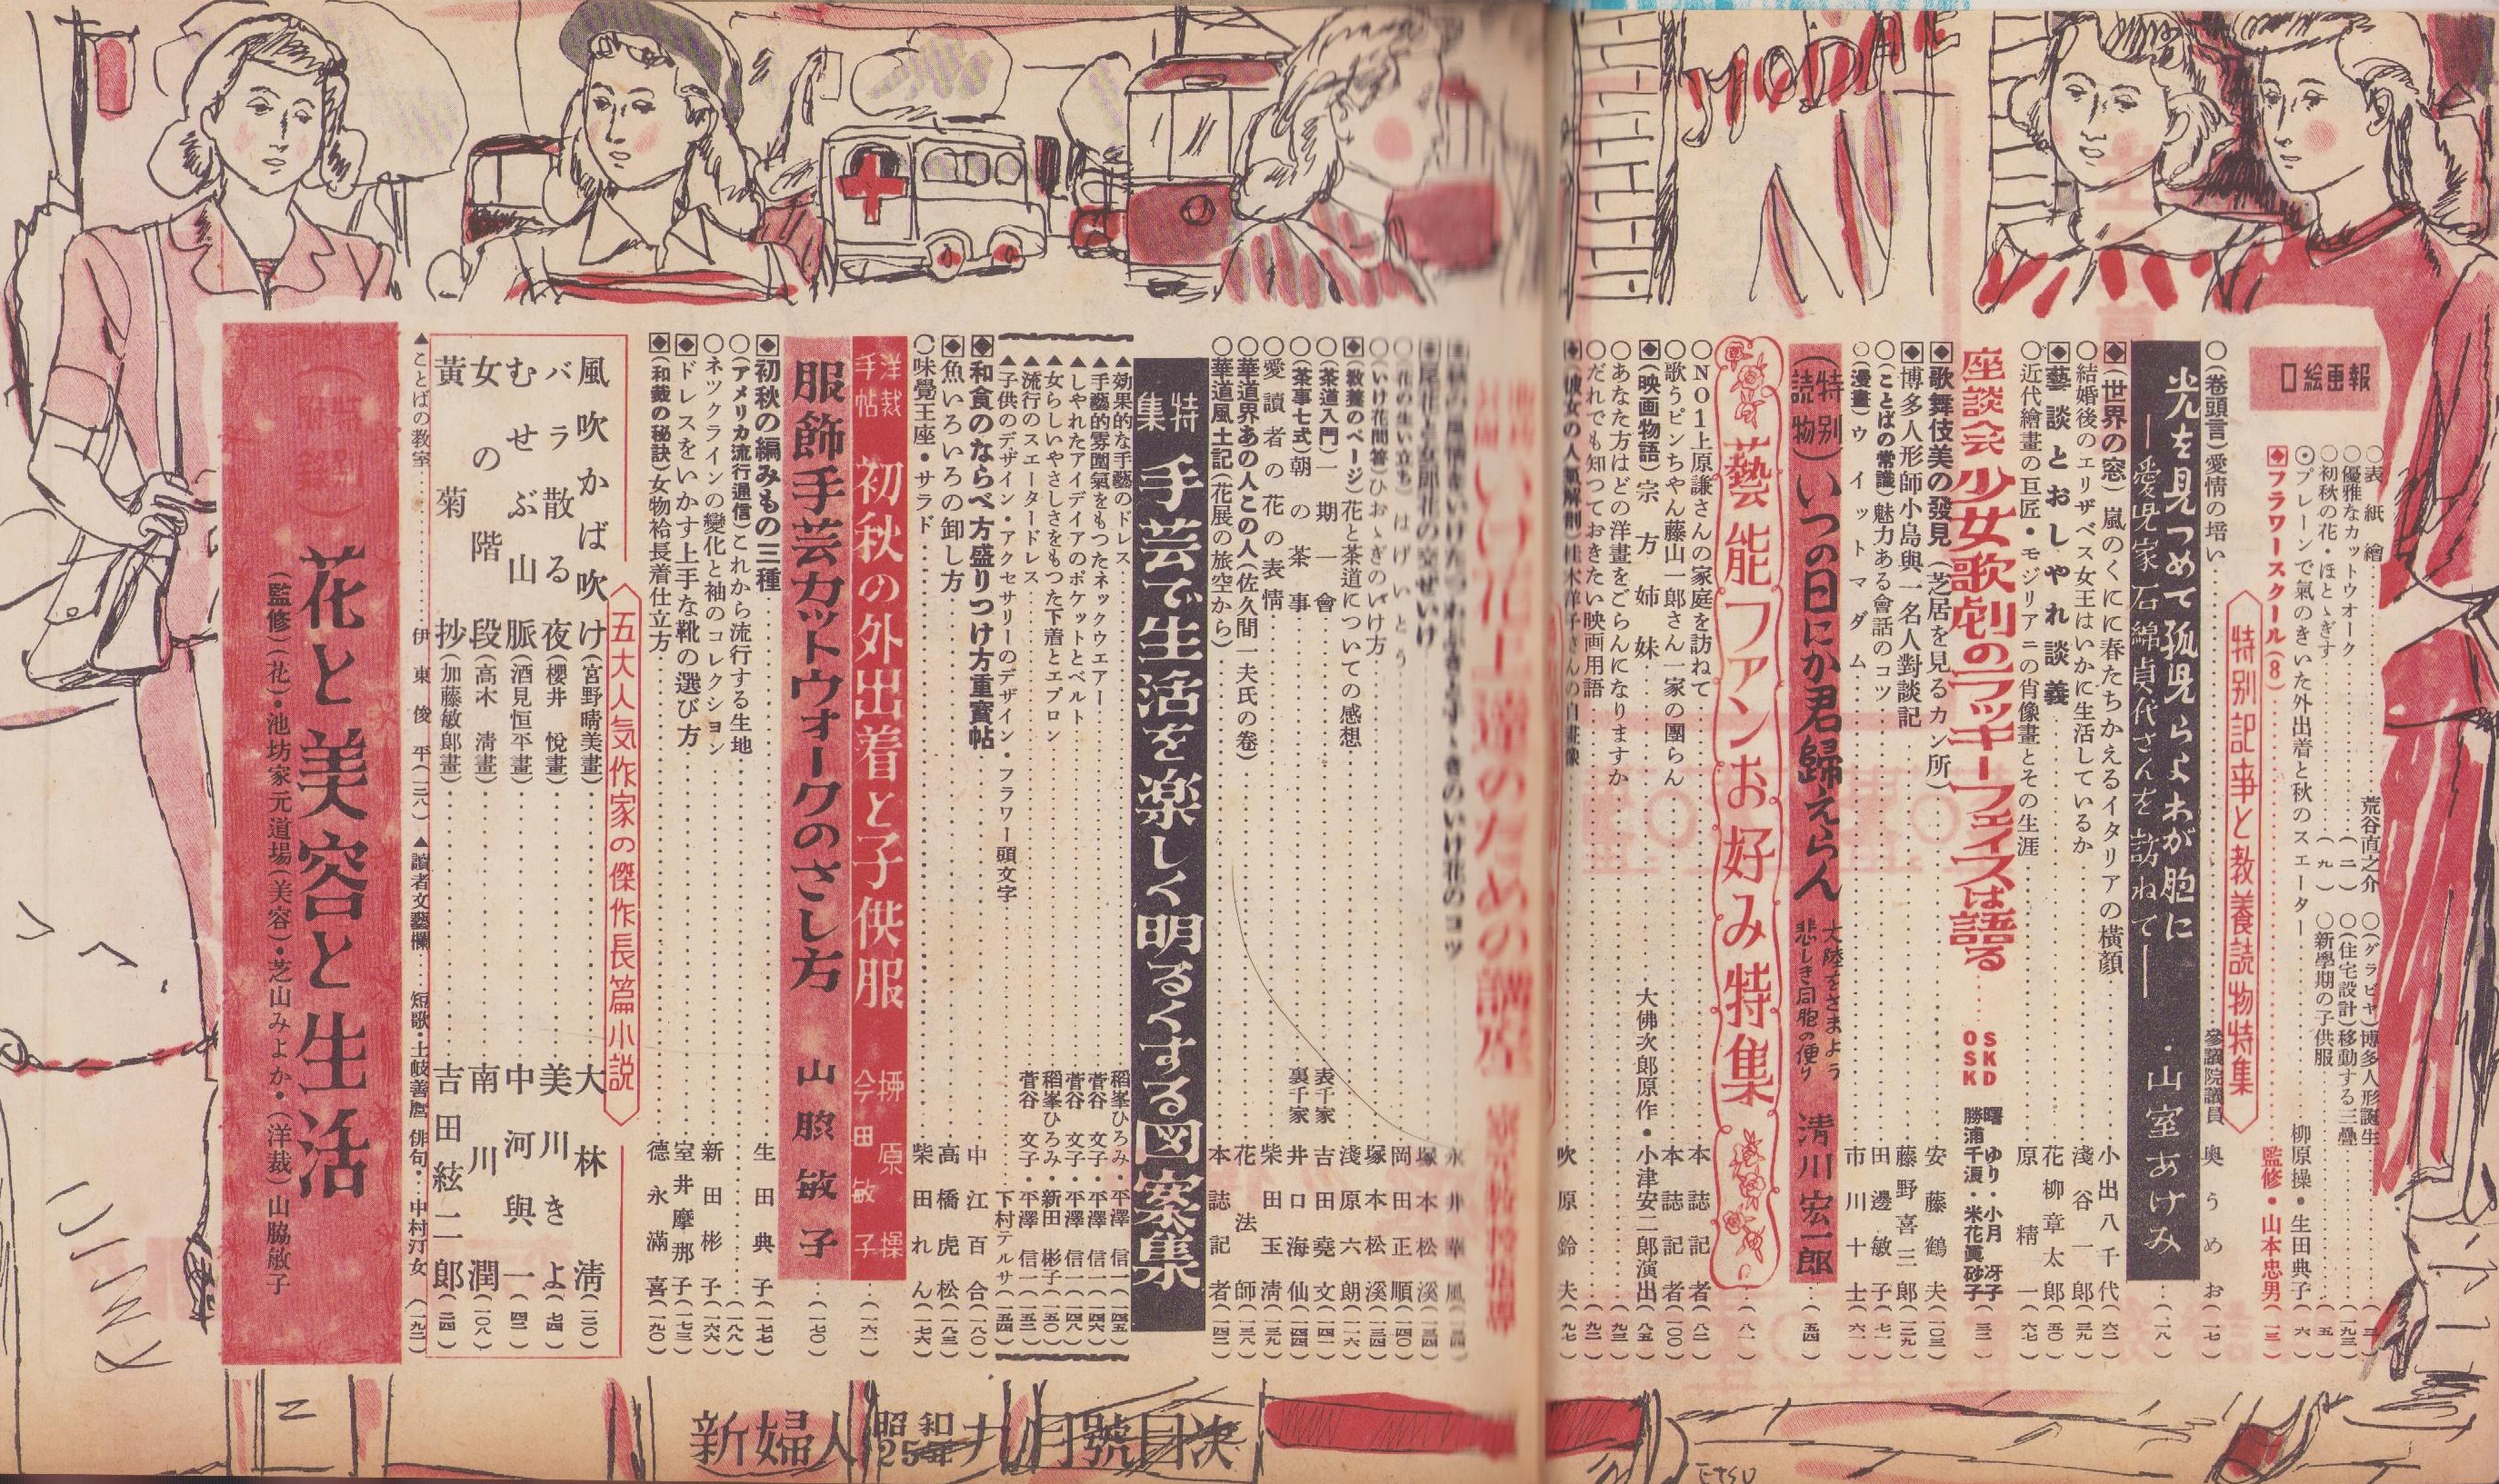 MODE
口絵画報
○表紙繪……荒谷直之介
○優雅なカットウオーク……(二)
○初秋の花・ほとゝぎす……(九)
⊙プレーンで氣のきいた外出着と秋のスエーター……柳原操・生田典子(六)
◆フラワースクール(8)……監修・山本忠男(一三)
○(グラビヤ)博多人形誕生
○(住宅設計)移動する三疊……(一九三)
○新學期の子供服……(五)
特別記事と教養読物特集
○(卷頭言)愛情の培い……參議院議員 奥うめお(一七)
光を見つめて孤児らよわが胞に
―愛児家石綿貞代さんを訪ねて―・山室あけみ……(一八)
◆(世界の窓)嵐のくにに春たちかえるイタリアの橫顔……小出八千代(六二)
○結婚後のエリザベス女王はいかに生活しているか……淺谷一郎(三九)
◆藝談とおしやれ談義……花柳章太郎(五〇)
○近代繪畫の巨匠・モジリアニの肖像畫とその生涯……原精一(六七)
座談会 少女歌劇のラッキーフェイスは語る……SKD 曙ゆり・小月冴子
OSK 勝浦千浪・米花眞砂子(三二)
◆歌舞伎美の發見(芝居を見るカン所)……安藤鶴夫(一〇三)
◆博多人形師小島與一名人對談記……藤野喜三郎(一二九)
○(ことばの常識)魅力ある會話のコツ……田邊敏子(七一)
○(漫畫)ウイットマダム……市川十士(六一)
(特別読物)いつの日にか君歸えらん 大陸をさまよう
悲しき同胞の便り 清川宏一郎……(五四)
藝能ファンお好み特集……(八一)
○NO1上原謙さんの家庭を訪ねて……本誌記者(八二)
○歌うピンちやん藤山一郎さん一家の團らん……本誌記者(一〇〇)
◆(映画物語)宗方姉妹……大佛次郎原作・小津安二郎演出(八五)
○あなた方はどの洋畫をごらんになりますか……(九三)
○だれでも知つておきたい映画用語……(九二)
吹原鈴夫(九七)
永井華風
塚本松溪
岡田正順(一四〇)
○いけ花問答)ひおゝぎのいけ方……塚本松溪(一三四)
◆(教養のページ)花と茶道についての感想……淺原六朗(一一六)
○(茶道入門)一期一會……表千家 吉田堯文(一四一)
○(茶事七式)朝の茶事……裏千家 井口海仙(一四四)
○愛讀者の花の表情……柴田玉淸(一三九)
○華道界あの人この人(佐久間一夫氏の卷)……花法師(一三八)
○華道風土記(花展の旅空から)……本誌記者(一四二)
特集 手芸で生活を楽しく明るくする図案集
▲効果的な手藝のドレス……稻峯ひろみ・平澤信一(一四五)
▲手藝的雰圍氣をもつたネックウエアー……菅谷文子・平澤信一(一四六)
▲しやれたアイデイアのポケットとベルト……菅谷文子・平澤信一(一四八)
▲女らしいやさしさをもつた下着とエプロン……稻峯ひろみ・新田彬子(一五〇)
▲流行のスエータードレス……菅谷文子・平澤信一(一五二)
▲子供のデザイン・アクセサリーのデザイン・フラワー頭文字……下村テルサ(一五四)
◆和食のならべ方盛りつけ方重寶帖……中江百合(一八〇)
◆魚いろいろの卸し方……高橋虎松(一八三)
○味覺王座・サラド……柴田れん(一七六)
洋裁手帖 初秋の外出着と子供服 柳原操
今田敏子……(一六一)
服飾手芸カットウォークのさし方 山脇敏子……(一七〇)
◆初秋の編みもの三種……生田典子(一七七)
○(アメリカ流行通信)これから流行する生地……(一八八)
○ネツクラインの變化と袖のコレクション……新田彬子(一六六)
◆ドレスをいかす上手な靴の選び方……室井摩那子(一七三)
◆(和裁の秘訣)女物袷長着仕立方……德永滿喜(一九〇)
五大人気作家の傑作長篇小説
風吹かば吹け(宮野晴美畫)……大林淸(一二〇)
バラ散る夜(櫻井悅畫)……美川きよ(七四)
むせぶ山脈(酒見恒平畫)……中河與一(四二)
女の階段(高木淸畫)……南川潤(一〇八)
黃菊抄(加藤敏郎畫)……吉田絃二郎(二四)
▲ことばの教室……伊東俊平(一二八) ▲讀者文藝欄……短歌・土岐善麿 俳句・中村汀女(一九二)
花と美容と生活
(監修)(花)・池坊家元道場(美容)・芝山みよか・(洋裁)山脇敏子
新婦人 昭和25年九月號目次
ETSU